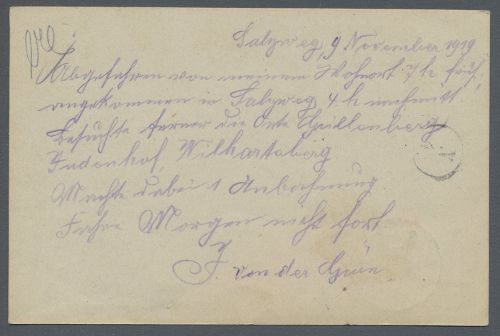 Salzweg, 9 November 1919
Abgefahren von meinem Wohnort 7 h früh,
angekommen in Salzweg 4 h nachmitt
besuchte ferner die Orte Grillenberg
Judenhof, Wilhartsberg
Machte dabei 1 Anbahnung.
Fahre Morgen nicht fort
F. von der Grün